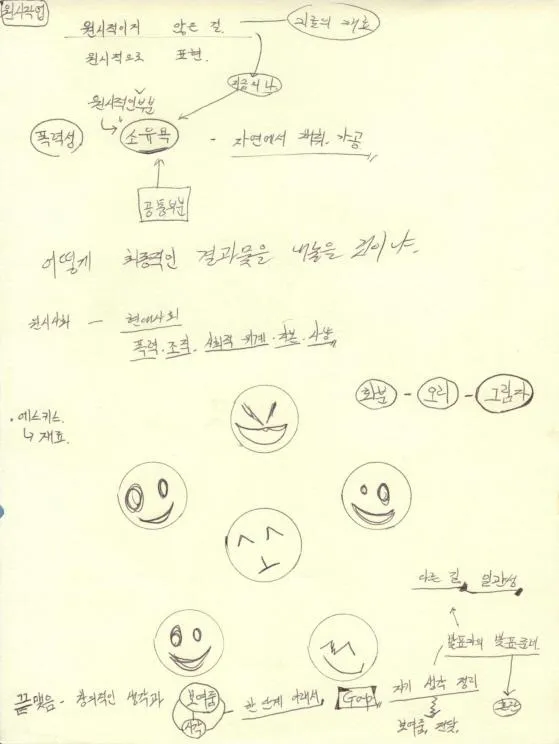 원시작업
원시적이지 않은 걸. 지금의 재료
원시적으로 표현.
지금의 나
원시적인 부분
폭력성. 소유욕 - 자연에서 채취. 가공
공통부분
어떻게 최종적인 결과물을 내놓을 것이냐.
원시사회 - 현대사회
폭력. 조직. 사회적 위계. 자본. 사냥
화분 - 오리 - 그림자
· 에스키스.
↳ 재료.
다른 길 일관성
발표자의 발표준비
끝맺음 - 창의적인 생각과 보여줌 한 단계 아래서, 자기 생각 정리
시각
보여줌, 전달.